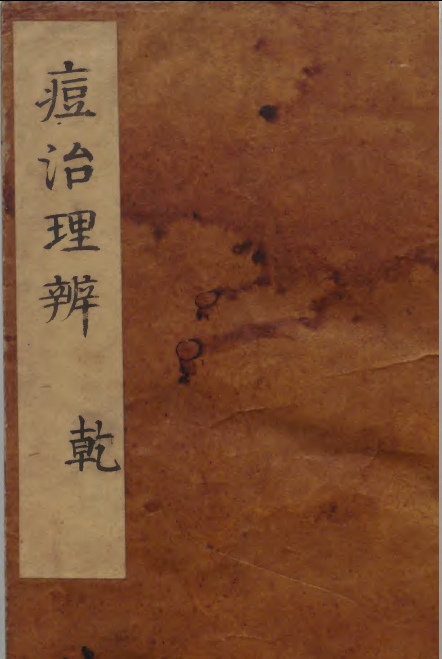 痘治理辨
乾